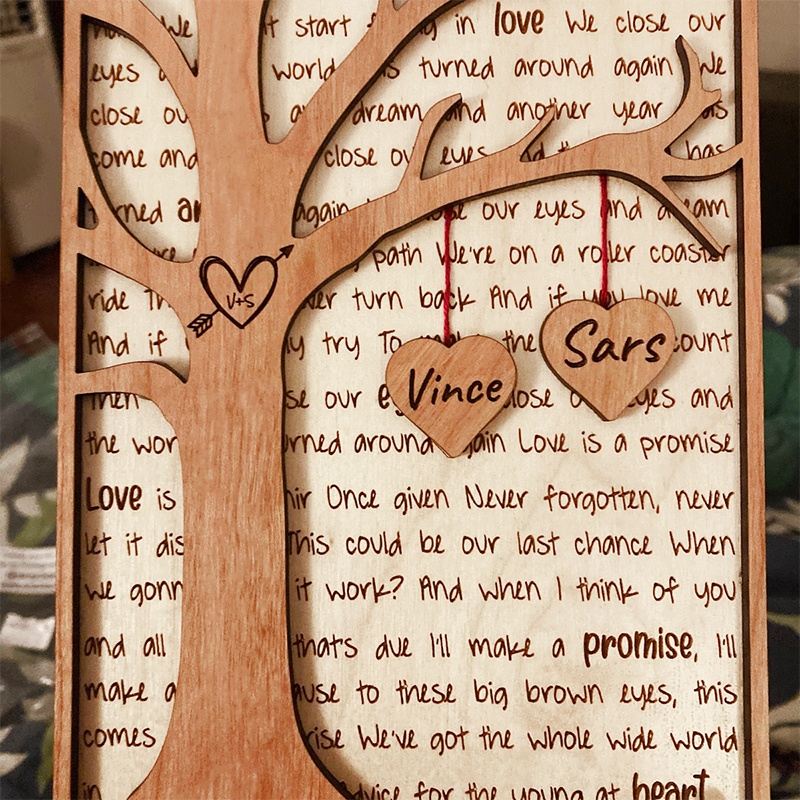 We start in love We close our
eyes world turned around again We
close dream and another year has
come and close our eyes and has
turned again our eyes and dream
path We're on a roller coaster
ride never turn back And if you love me
And if try To the count
V+S
Vince
Sars
Then our close our eyes and
the turned around again Love is a promise
Love is Once given Never forgotten, never
let it This could be our last chance When
we it work? And when I think of you
and all that's due I'll make a promise, I'll
make to these big brown eyes, this
comes We've got the whole wide world
in for the young at heart